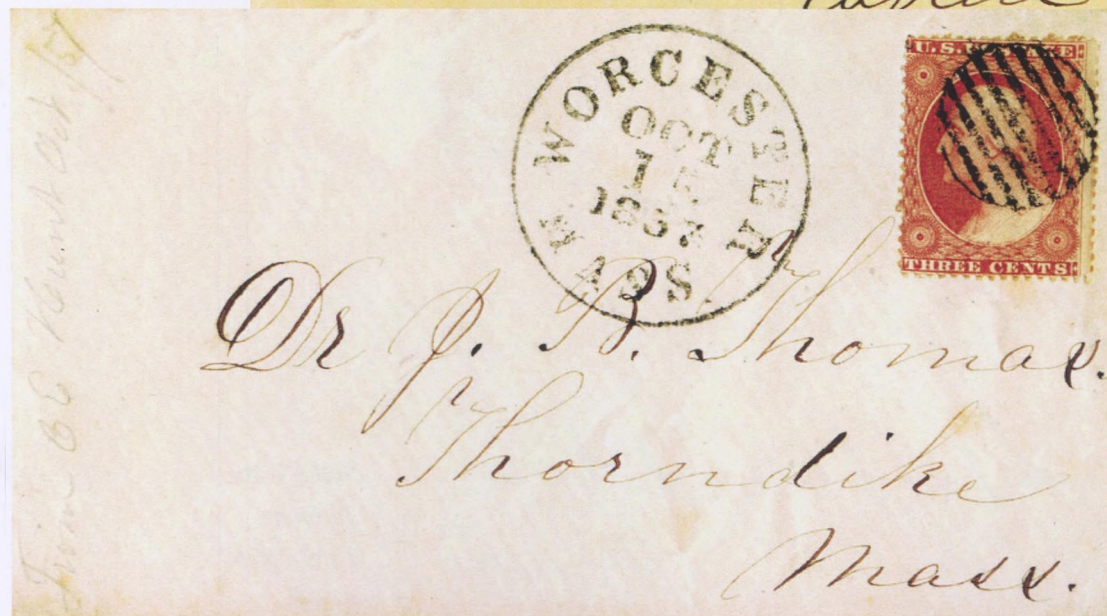 WORCESTER
OCT
15
1857
MASS.
U.S.
THREE CENTS
Dr J. B. Thomas.
Thorndike
Mass.
From
Oct